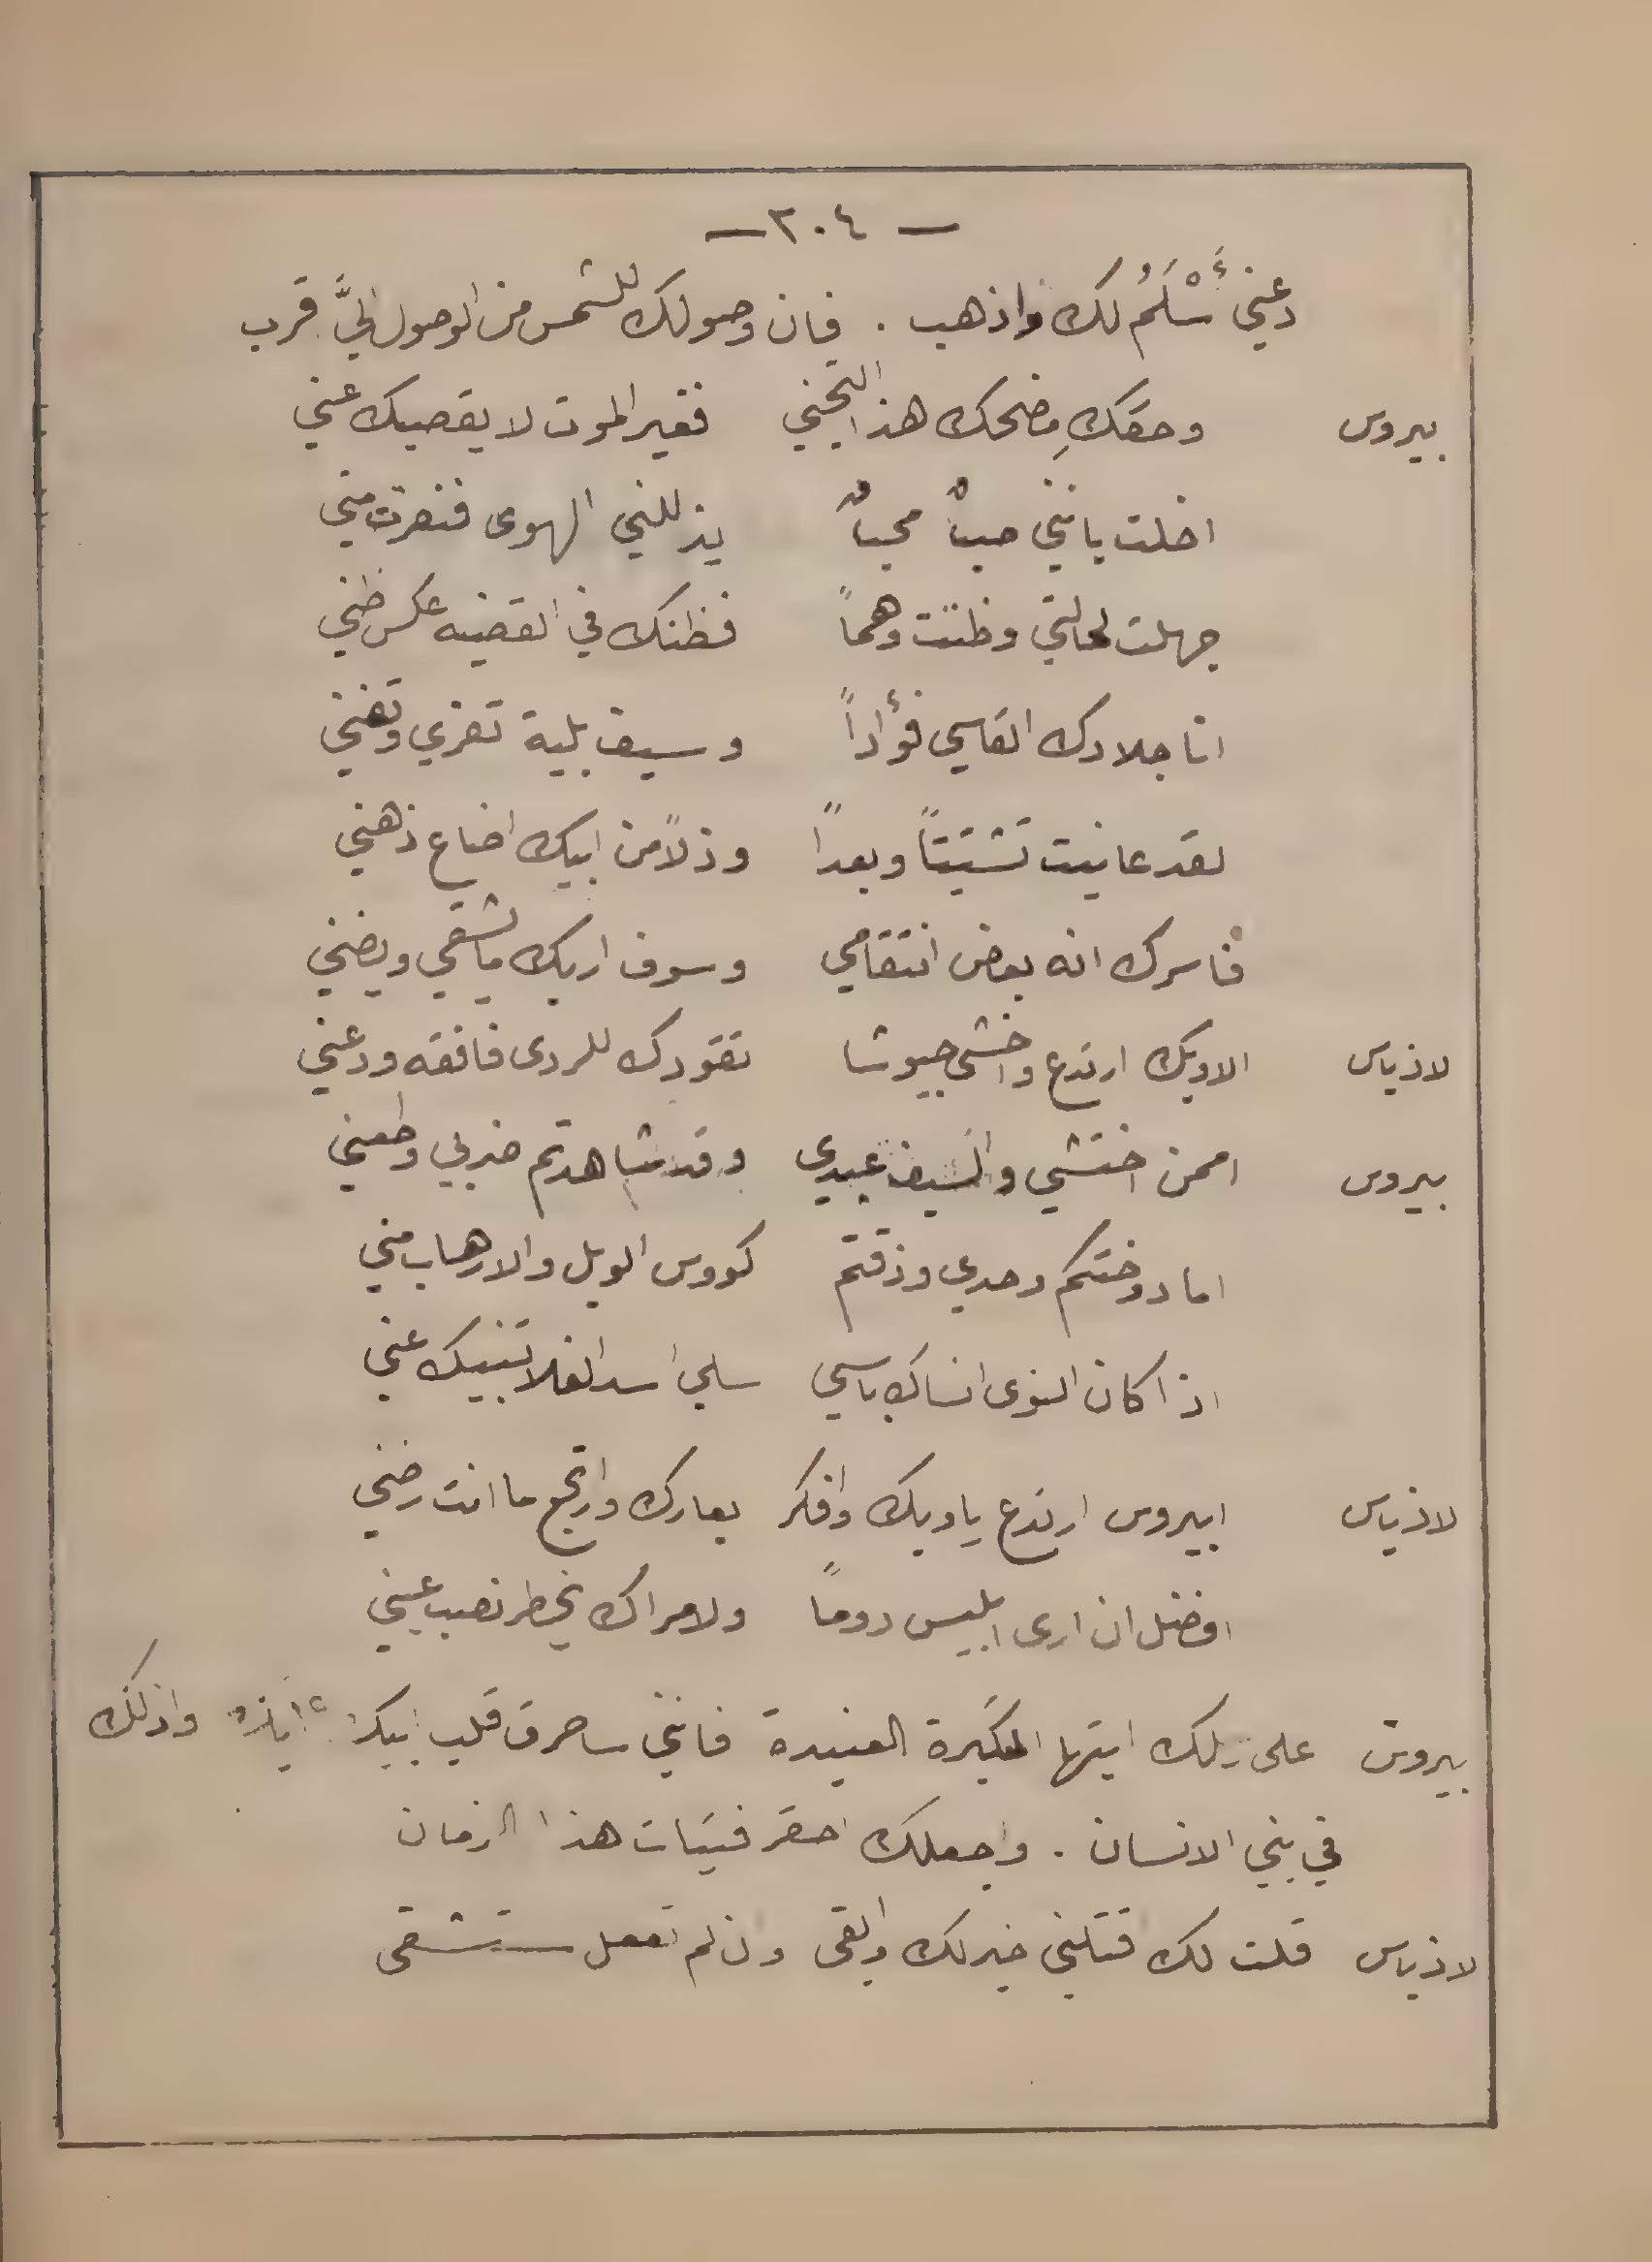 — ٣٠٤ —
دعني أَسْلَمُ لك واذهب . فان وصولك للشمس من الوصول اليَّ قرب
بيروس وحقكِ مضحك هذا التجني فغير الموت لا يقصيك عني
اخلت بانني صبٌ محبٌ يذللني الهوى فنفرت مني
جهلت لحالتي وظننت وهماً فظنك في القضيه عكس ظني
انا جلادك القاسي فؤاداً وسيف بلية تفري وتفني
لقد عانيت تشتيتاً وبعداً وذلاً من ابيك اضاع ذهني
فاسرك انه بعض انتقامي وسوف اريك ما يشقي ويضني
لاذياس الاويك ارتدع واخشى جيوشا تقودك للردى فافقه ودعني
بيروس اممن اختشي والسيف عبدي وقد شاهدتم ضربي وطعني
اما دوختكم وحدي وذقتم كووس الويل والارهاب مني
اذا كان النوى انساك باسي سلي اسد الفلا تنبيك عني
لاذياس ابيروس ارتدع ياويك وافكر بعارك وارتجع ما انت رضني
افضل ان ارى ابليس دوما ولا مراك يخطر نصب عيني
بيروس على رسلك ايتها المتكبرة العنيدة فانني ساحرق قلب ابيك واذلك
في بني الانسان . واجعلك احقر فتيات هذا الزمان
لاذياس قلت لك قتلني خير لك وابقى وان لم تفعل ستشقى